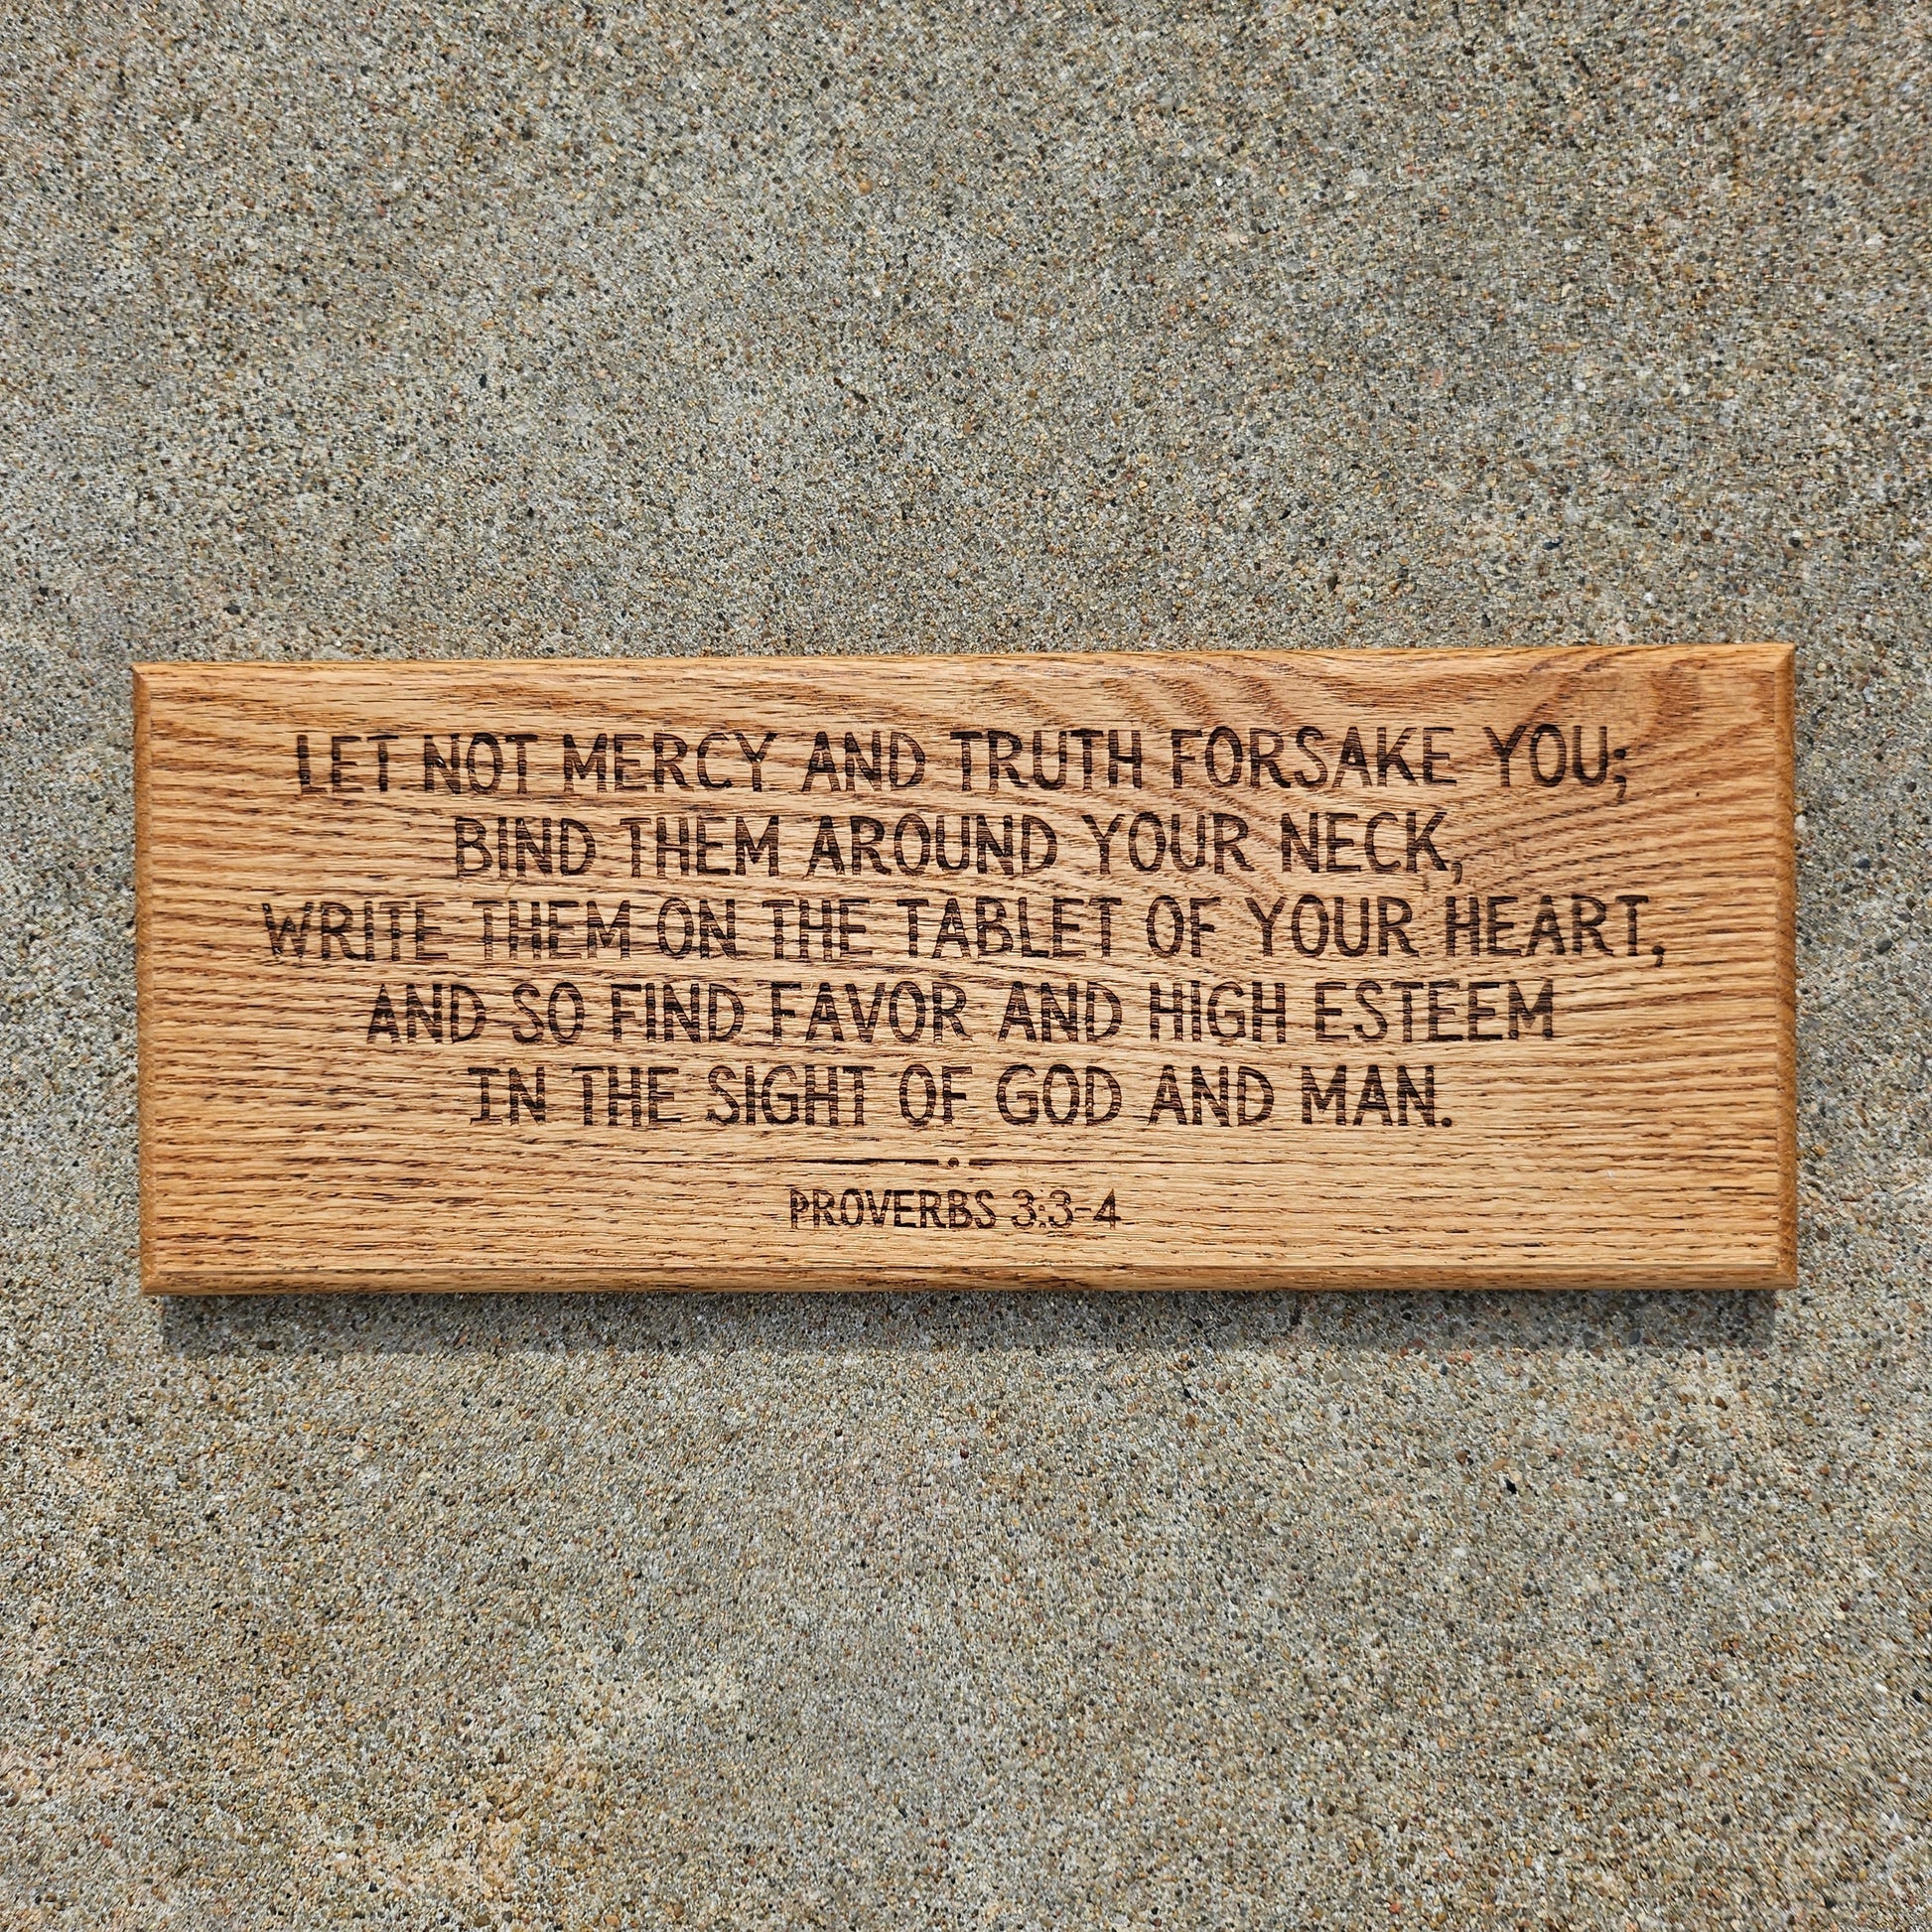 LET NOT MERCY AND TRUTH FORSAKE YOU;
BIND THEM AROUND YOUR NECK,
WRITE THEM ON THE TABLET OF YOUR HEART,
AND SO FIND FAVOR AND HIGH ESTEEM
IN THE SIGHT OF GOD AND MAN.
PROVERBS 3:3-4